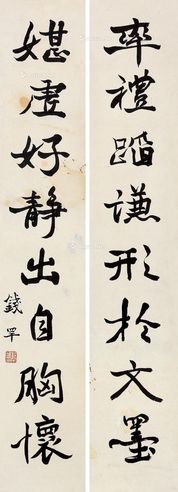 率禮蹈謙形於文墨
媅虛好靜出自胸懷
錢罕